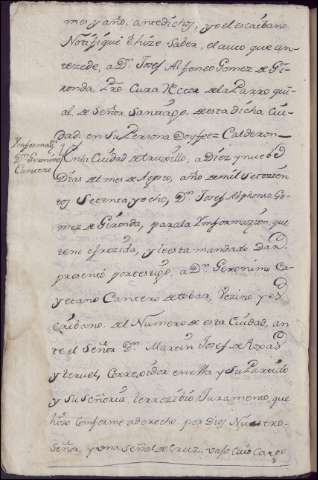 mes y año, antedichos, yo el escribano
Notifiqué é hize Saber, el auto que an-
tezede, a Dn. Josef Alfonso Gomez de Gi-
ronda, Pro. Cura Rector de la Parro qui
al de Señor Santiago, de esta dicha Ciu-
dad, en Su Persona Doyfee= Calderon=
Informaz.
Dn. Geronimo
Cancero
En la Ciudad de truxillo, a Diez y nuebe
Dias del mes de Agosto, año de mil Setezien
tos Setenta y ocho, Dn. Josef Alphonso Go-
mez de Gironda, para la Ynformazion, que
tiene ofrezida, y le esta mandado Dar,
presentó por testigo, a Dn. Geronimo Ca-
yetano Cancero de tobar, Vezino y es
cribano del Numero de esta Ciudad, an-
te el Señor Dn. Martin Josef de Roxas
y teruel, Corregidor en ella y Su Partido
y Su Señoria, le rrezibio Juramento, que
hizo conforme a derecho, por Dios Nuestro
Señor, y una Señal de Cruz, vajo cuio cargo